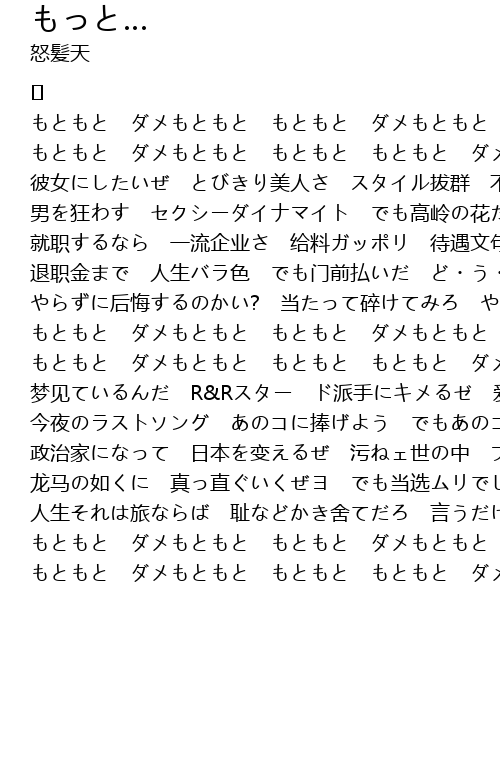 もっと...
怒髪天
もともと　ダメもともと　もともと　ダメもともと
もともと　ダメもともと　もともと　もともと　ダメ
彼女にしたいぜ　とびきり美人さ　スタイル抜群
男を狂わす　セクシーダイナマイト　でも高岭の花だ
就职するなら　一流企业さ　给料ガッポリ　待遇文句
退职金まで　人生バラ色　でも门前払いだ　ど・う・
やらずに后悔するのかい?　当たって砕けてみろ　や
もともと　ダメもともと　もともと　ダメもともと
もともと　ダメもともと　もともと　もともと　ダメ
梦见ているんだ　R&Rスター　ド派手にキメるゼ　爱
今夜のラストソング　あのコに捧げよう　でもあのコ
政治家になって　日本を変えるぜ　污ねェ世の中　ブ
龙马の如くに　真っ直ぐいくぜヨ　でも当选ムリでし
人生それは旅ならば　耻などかき舍てだろ　言うだけ
もともと　ダメもともと　もともと　ダメもともと
もともと　ダメもともと　もともと　もともと　ダメ